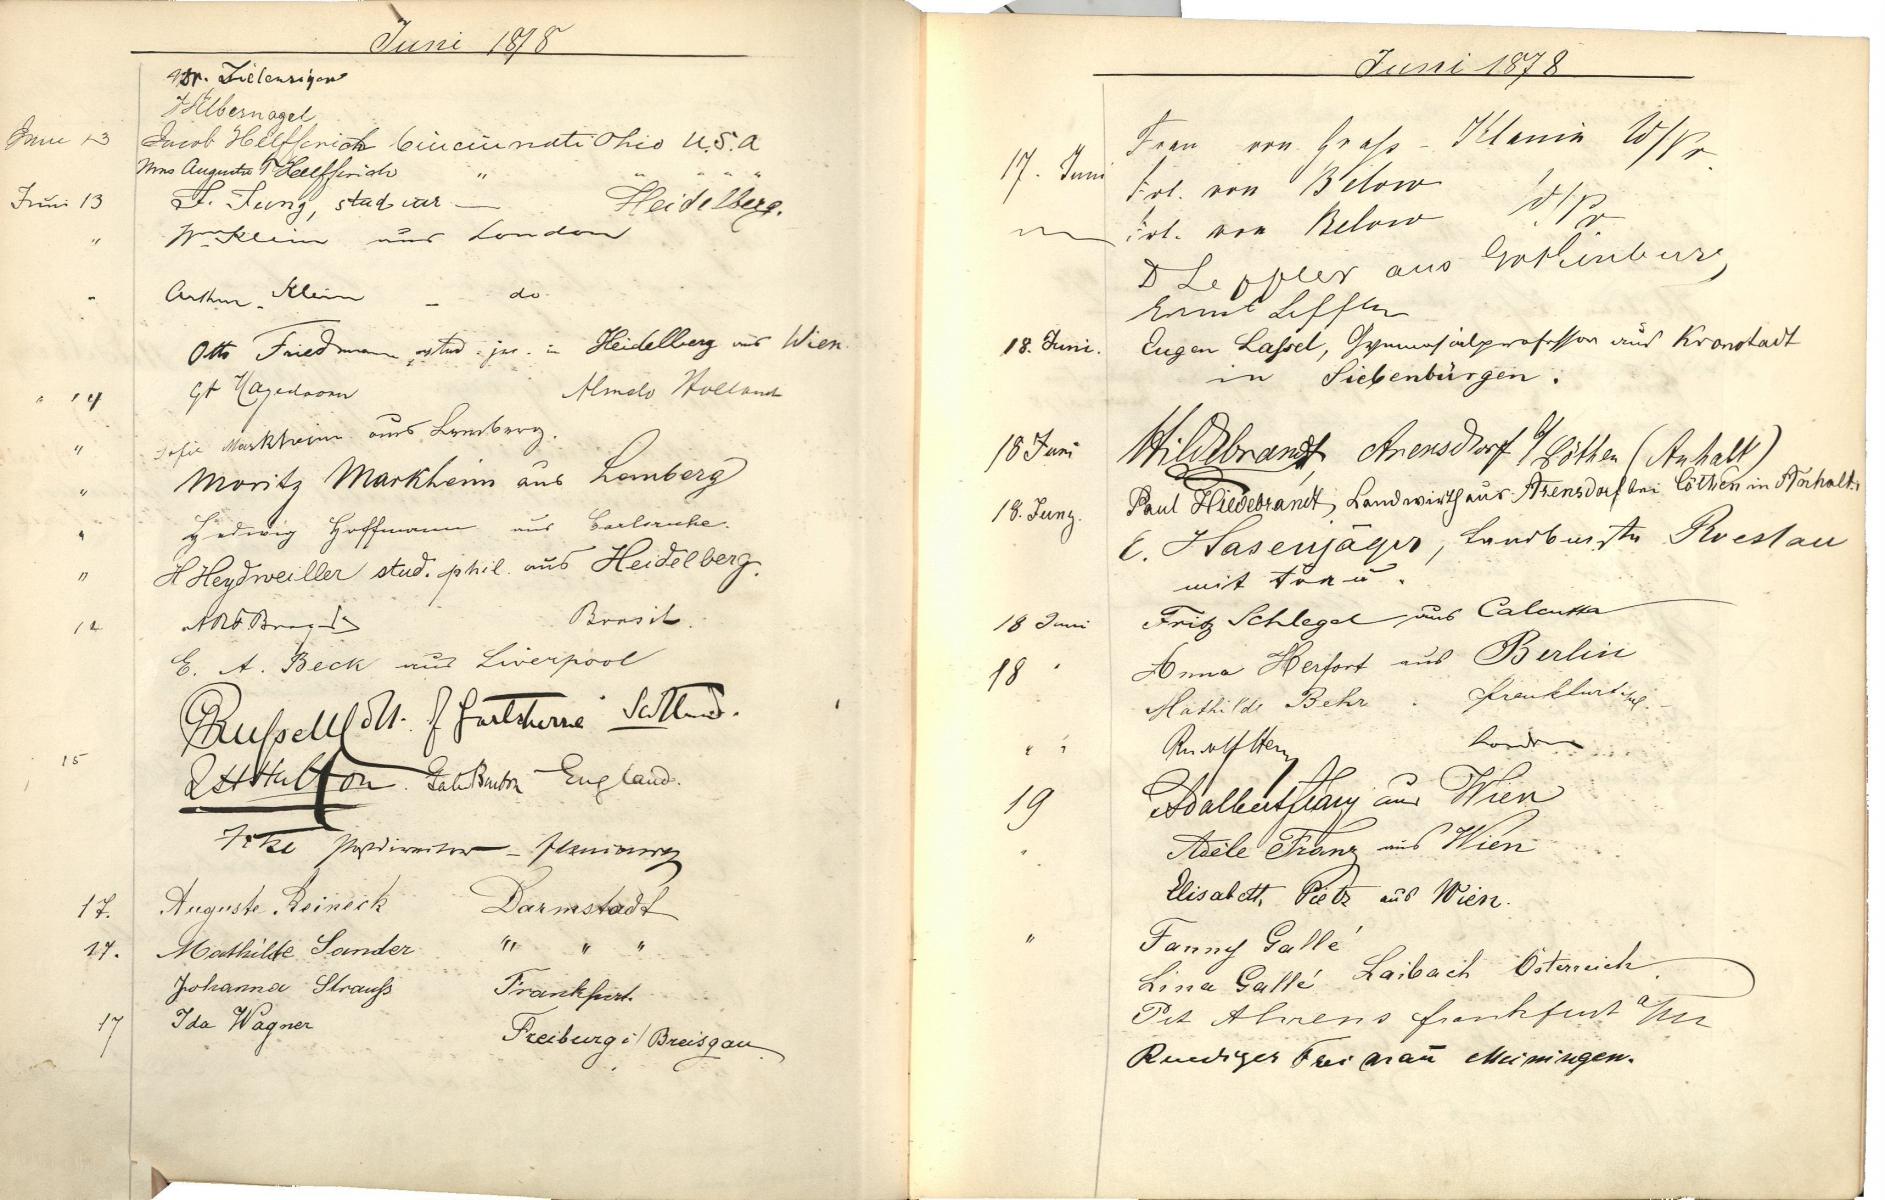 Juni 1878
Dr. Zielenziger
Silbernagel
June 13 Jacob Helfferich Cincinnati Ohio U.S.A
Mrs Augusta Helfferich " " " " "
Juni 13 F. Jung, stud. Heidelberg.
" Wm Klein aus London
" Arthur Klein – do
Otto Friedmann stud. jur. in Heidelberg aus Wien.
" 14 Hagedoorn Almelo Holland
" Sofie Markheim aus Lemberg.
" Moritz Markheim aus Lemberg
" Hedwig Hoffmann aus Carlsruhe.
" H Heydweiller stud. phil. aus Heidelberg.
Brasil.
E. A. Beck aus Liverpool
Scotland.
15 Hulton England.
Postdirector –
17. Auguste Reineck Darmstadt
17. Mathilde Sander " " "
Johanna Strauss Frankfurt.
17 Ida Wagner Freiburg i/Breisgau
Juni 1878
Frau von Grass - Klanin W/Pr.
17. Juni Frl. von Below
Frl. von Below W/Pr
D Leffler aus Gothenburg
Ernst Leffler
18. Juni. Eugen Lassel, Gymnasialprofessor aus Kronstadt
in Siebenbürgen.
18 Juni Hildebrandt, Arensdorf b/ Cöthen (Anhalt)
18. Juny. Paul Hildebrandt, Landwirth aus Arensdorf bei Cöthen in Anhalt.
E. Hasenjäger,
mit Frau.
18 Juni Fritz Schlegel aus Calcutta
18 " Anna Herfort aus Berlin
Mathilde Behr. Frankfurt
" " Rudolf London
19 Adalbert Franz aus Wien
" Adèle Franz aus Wien
Elisabeth Pietz aus Wien.
" Fanny Gallé
Lina Gallé Laibach Österreich.
Pet Ahrens Frankfurt a/M
Ruediger Freimann Meiningen.